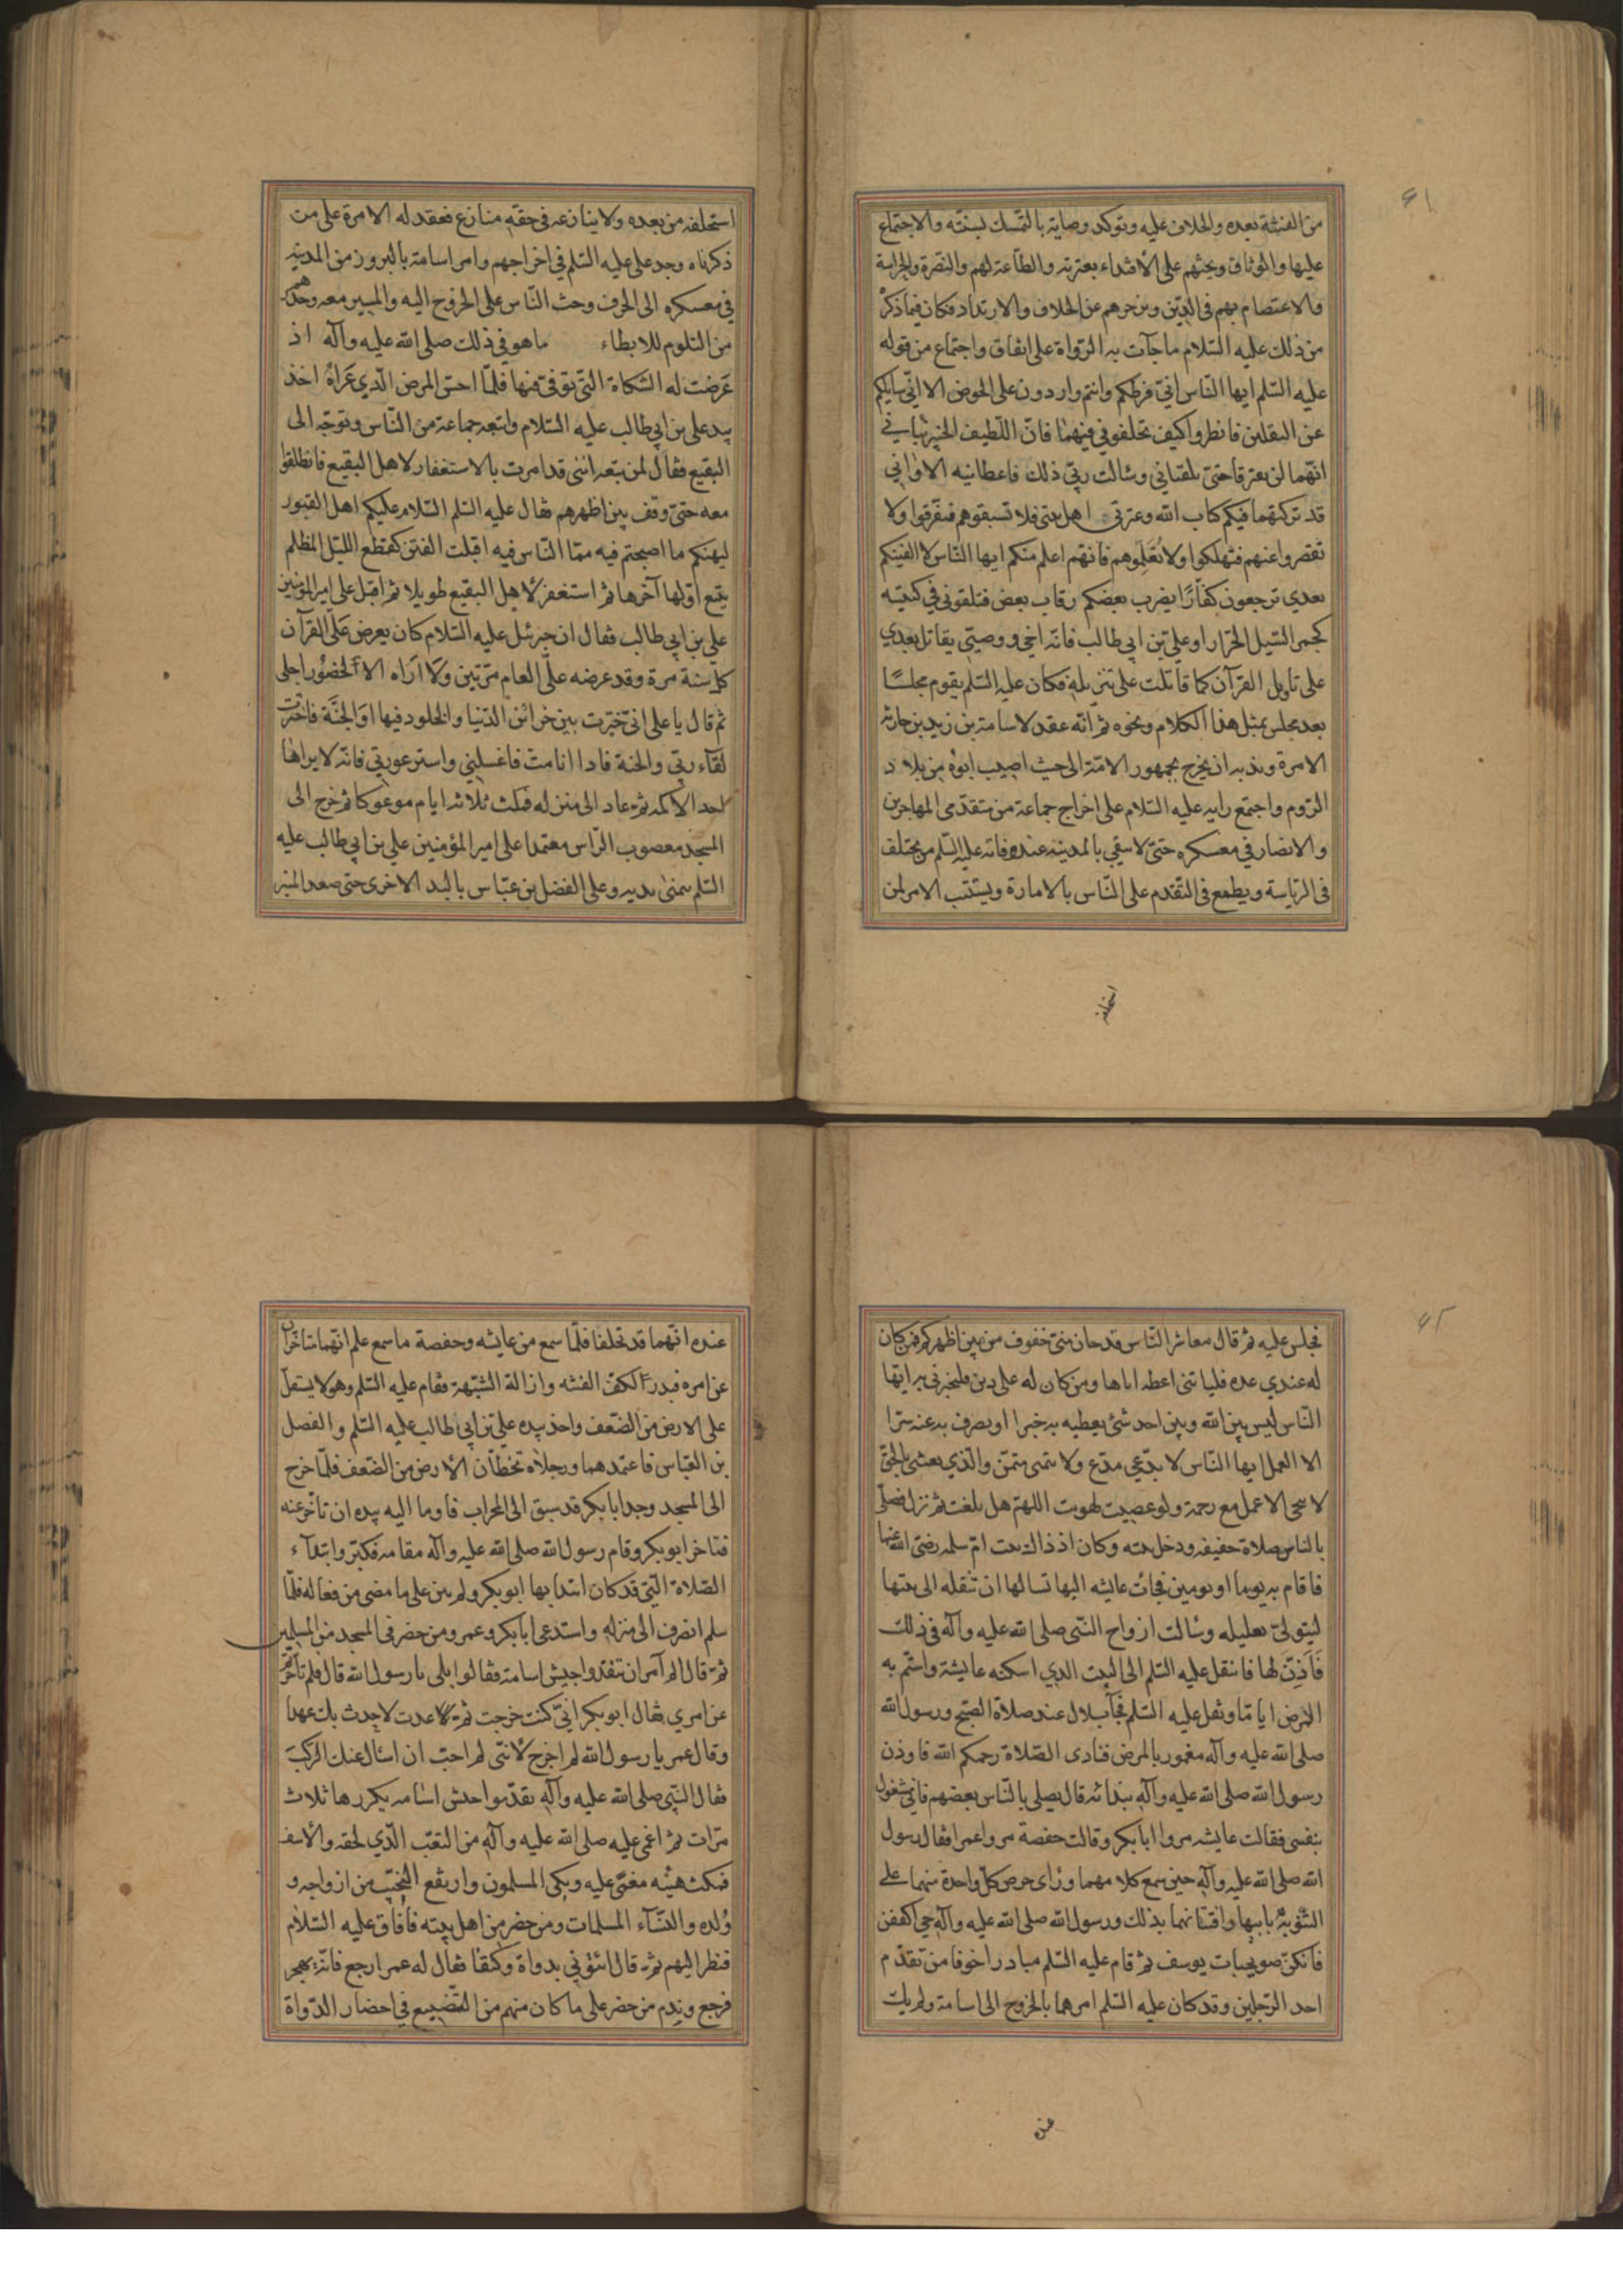 ٤١
من الفتنة بعده والخلاف عليه ويوكد وصايته بالتمسك بسنته والاجتماع
عليها والوثاق ويحثهم على الأقتداء بعترته والطاعة لهم والنصرة والحراسة
والاعتصام بهم في الدين ويزجرهم عن الخلاف والارتداد فكان فيما ذكر
من ذلك عليه السلام ما جاءت به الرواة على اتفاق واجتماع من قوله
عليه السلم ايها الناس اني فرطكم وانتم واردون على الحوض الا اني سايلكم
عن الثقلين فانظروا كيف تخلفوني فيهما فان اللطيف الخبير نباني
انهما لن يفترقا حتى يلقياني وسالت ربي ذلك فاعطانيه الا واني
قد تركتهما فيكم كتاب الله وعترتي اهل بيتي فلا تسبقوهم فتفرقوا ولا
تقصروا عنهم فتهلكوا ولا تُعَلِّموهم فانهم اعلم منكم ايها الناس لا الفينكم
بعدي ترجعون كفّارًا يضرب بعضكم رقاب بعض فتلقوني في كتيبة
كمجر السيل الجرار او علي بن ابي طالب فانه اخي ووصيتي يقاتل بعدي
على تاويل القرآن كما قاتلت على تنزيله فكان عليه السلم يقوم مجلسًا
بعد مجلس بمثل هذا الكلام ونحوه ثم انه عقد لاسامة بن زيد بن حارثه
الامرة وندبه ان يخرج بجمهور الامة الى حيث اصيب ابوه من بلاد
الروم واجتمع رايه عليه السلام على اخراج جماعة من متقدمي المهاجرين
والانصار في معسكره حتى لا يبقي بالمدينة عند وفاته عليه السلم من يختلف
في الرياسة ويطمع في التقدم على الناس بالامارة ويستتب الامر لمن
استخلفه
استخلفه من بعده ولا ينازعه في حقه منازع فعقد له الامرة على من
ذكرناه وجد على عليه السلم في اخراجهم وامر اسامة بالبروز من المدينة
في معسكره الى الجرف وحث الناس على الخروج اليه والمسير معه وحذرهم
من التلوم للابطاء ما هو في ذلك صلى الله عليه وآله اذ
عَرضت له الشكاة التي توفي فيها فلمّا احس المرض الذي عَراهُ اخذ
بيد علي بن ابي طالب عليه السلام واتبعه جماعة من الناس وتوجه الى
البقيع فقال لمن تبعه انني قد امرت بالاستغفار لاهل البقيع فانطلقوا
معه حتى وقف بين اظهرهم فقال عليه السلم السلام عليكم اهل القبور
ليهنكم ما اصبحتم فيه مما الناس فيه اقبلت الفتن كقطع الليل المظلم
يتبع اوّلها آخرها ثم استغفر لأهل البقيع طويلا ثم اقبل على امير المؤمنين
علي بن ابي طالب فقال ان جبرئيل عليه السلام كان يعرض عَلَيَّ القرآن
كل سنة مرة وقد عرضه علي العام مرّتين ولا اراه الا لحضُور اجلي
ثم قال يا علي اني خيرت بين خزائن الدنيا والخلود فيها او الجنّة فاخترت
لقآء ربي والجنة فاذا انا مت فاغسلني واستر عورتي فانه لا يراها
احد الا اكمه ثم عاد الى منزله فمكث ثلاثة ايام موعوكا ثم خرج الى
المسجد معصوب الراس معتمدا على امير المؤمنين علي بن ابي طالب عليه
السلم بيمنى يديه وعلى الفضل بن عبّاس باليد الاخرى حتى صعد المنبر
٤٢
فجلس عليه ثم قال معاشر الناس قد حان منّي خفوف من بين اظهركم فمن كان
له عندي عده فلياتني اعطه اياها ومن كان له على دين فليخبرني به ايها
الناس ليس بين الله وبين احد شئ يعطيه به خيرا او يصرف به عنه شرا
الا العمل ايها الناس لا يدّعي مدّع ولا يتمنى متمنّ والذي بعثني بالحق
لا ينجي الا عمل مع رحمة ولو عصيت لهويت اللهم هل بلغت ثم نزل فصلّى
بالناس صلاة خفيفه ودخل بيته وكان اذ ذاك بيت امّ سلمه رضي الله عنها
فاقام به يوما او يومين فجائت عايشه اليها تسالها ان تنقله الى بيتها
ليتولّى تعليله وسالت ازواج النبي صلى الله عليه وآله في ذلك
فَأَذِنّ لها فانتقل عليه السلم الى البيت الذي اسكنه عايشة واستمر به
المرض ايّامًا وثقل عليه السلم فجآء بلال عند صلاة الصبح ورسول الله
صلى الله عليه وآله مغمور بالمرض فنادى الصّلاة رحمكم الله فاوذن
رسول الله صلى الله عليه وآله بندائه قال يصلي بالناس بعضهم فاني مشغول
بنفسي فقالت عايشه مروا ابا بكر وقالت حفصة مروا عمر فقال رسول
الله صلى الله عليه وآله حين سمع كلامهما ورأى حرص كل واحدة منهما على
التنويه بابيها وافتتانهما بذلك ورسول الله صلى الله عليه وآله حي اكففن
فانكنّ صويحبات يوسف ثم قام عليه السلم مبادرا خوفا من تقدم
احد الرجلين وقد كان عليه السلم امرهما بالخروج الى اسامة ولم يك
عنده
عنده انهما قد تخلفا فلمّا سمع من عايشه وحفصة ما سمع علم انهما متاخران
عن امره فبدر لكفّ الفتنه وازالة الشبهة فقام عليه السلم وهو لا يستقلّ
على الارض من الضعف واخذ بيده علي بن ابي طالب عليه السلم والفضل
بن العبّاس فاعتمدهما ورجلاه تخطّان الأرض من الضعف فلمّا خرج
الى المسجد وجد ابا بكر قد سبق الى المحراب فاوما اليه بيده ان تاخر عنه
فتاخر ابو بكر وقام رسول الله صلى الله عليه وآله مقامه فكبّر وابتدآء
الصّلاة التي قد كان ابتدا بها ابو بكر ولم يبن على ما مضى من فعاله فلمّا
سلم انصرف الى منزله واستدعى ابا بكر وعمر ومن حضر في المسجد من المسلمين
ثم قال الم آمر ان تنفذوا جيش اسامة فقالوا بلى يا رسول الله قال فلم تاخرتم
عن امري فقال ابو بكر اني كنت خرجت ثم عدت لاجدث بك عهدا
وقال عمر يا رسول الله لم اخرج لأنّني لم احبّ ان اسال عنك الركبَ
فقال النبي صلى الله عليه وآله نفذوا جيش اسامه يكررها ثلاث
مرّات ثم اغمي عليه صلى الله عليه وآله من التعب الذي لحقه والأسف
فمكث هنيئه مغمًى عليه وبكى المسلمون وارتفع النحيب من ازواجه و
وُلده والنسآء المسلمات ومن حضر من اهل بيته فافاق عليه السلام
فنظر اليهم ثم قال ائتوني بدواة وكتف فقال له عمر ارجع فانّه يهجر
فرجع وندم من حضر على ما كان منهم من التضييع في احضار الدواة